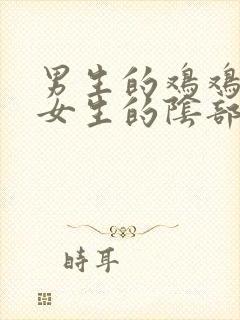 男生的鸡鸡
女生的陰部
時耳